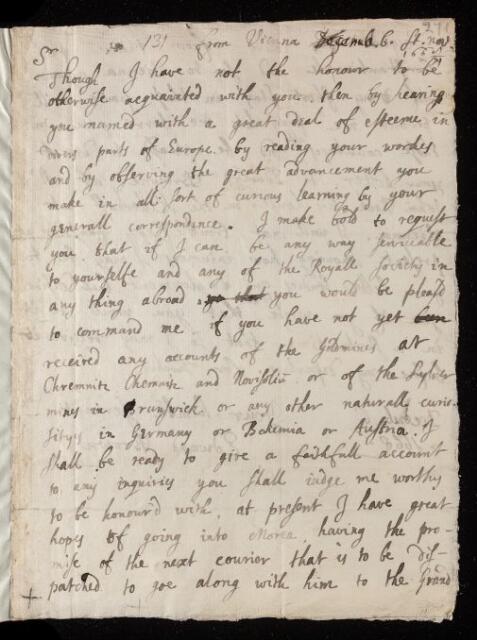 131 from Vienna Decemb. 6. St. nov.
Sr
Though I have not the honour to be
otherwise acquainted with you then by hearing
you named with a great deal of esteeme in
divers parts of Europe by reading your workes
and by observing the great advancement you
make in all sort of curious learning by your
generall correspondence. I make bold to request
you that if I can be any way serviceable
to yourselfe and any of the Royall Society in
any thing abroad yt that you would be pleasd
to command me. if you have not yet been
received any accounts of the Goldmines at
Chremnitz Chemnitz and Novisoliu or of the Sylver
mines in Brunswick or any other naturall curio-
sitys in Germany or Bohemia or Austria. I
shall be ready to give a faithfull account
to any inquiries you shall iudge me worthy
to be honour'd with. at present I have great
hopes of going into Morea, having the pro-
mise of the next courier that is to be dis-
patched to goe along with him to the Grand